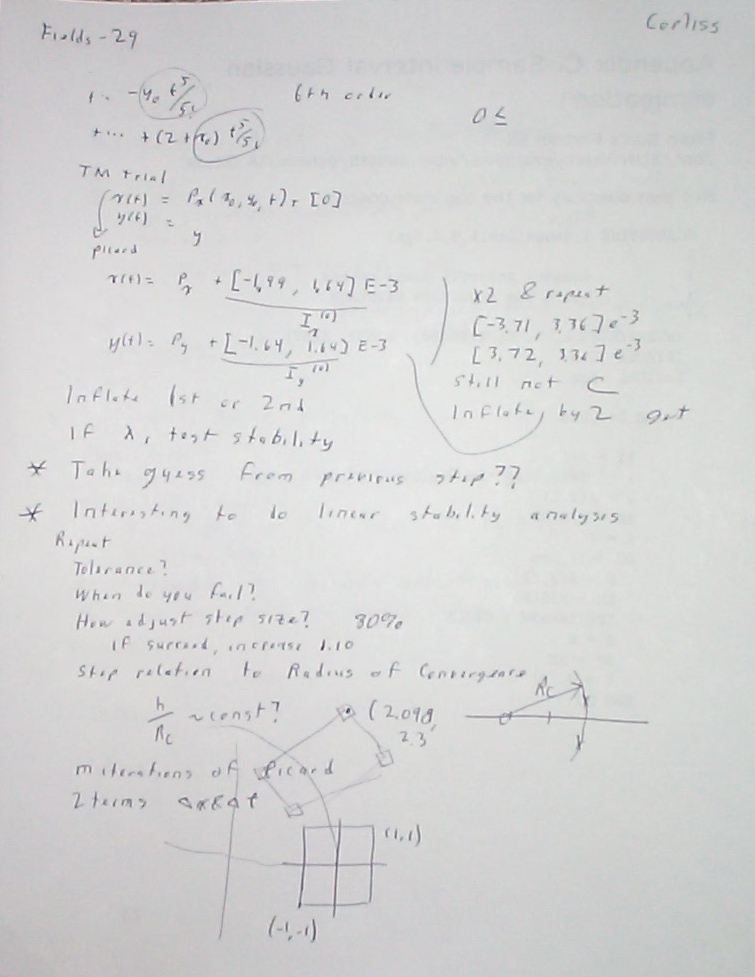 Fields - 29
Corliss
+ ... - y₀ t⁵/5! 6th order
0 ≤
+ ... + (2 + x₀) t⁵/5!
TM trial
x(t) = Pₓ(x₀, y₀, t) + [0]
y(t) = y
Picard
x(t) = Pₓ + [-1.99, 1.64] E-3
Iₓ⁽⁰⁾
y(t) = P_y + [-1.64, 1.64] E-3
I_y⁽⁰⁾
x2 & repeat
[-3.71, 3.36] e⁻³
[3.72, 3.36] e⁻³
still not ⊂
Inflate, by 2 get
Inflate 1st or 2nd
If λ, test stability
* Take guess from previous step??
* Interesting to do linear stability analyses
Repeat
Tolerance?
When do you fail?
How adjust step size? 80%
If succeed, increase 1.10
Step relation to Radius of Convergence
h/Rc ~ const?
(2.098,
2.3
Rc
m iterations of Picard
2 terms Δx & Δt
(1,1)
(-1,-1)